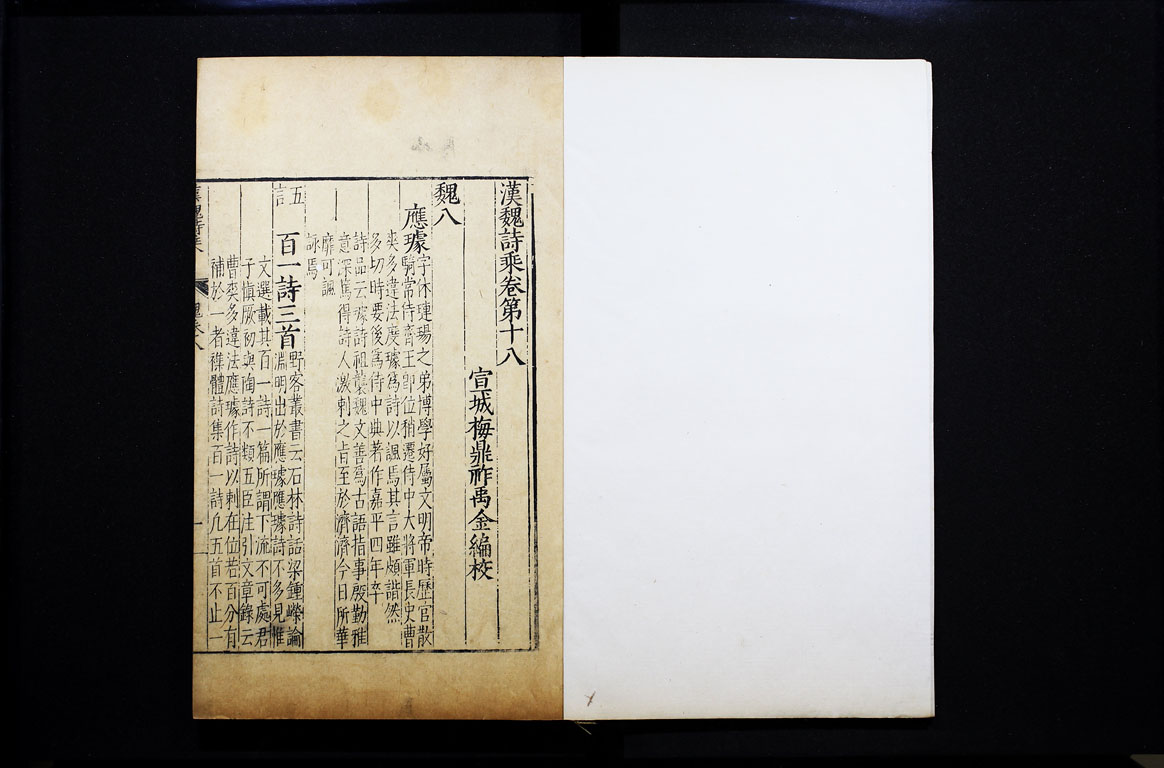 漢魏詩乘卷第十八
宣城梅鼎祚禹金編校
魏八
應璩
字休璉瑒之弟博學好屬文明帝時歷官散
騎常侍齊王卽位稍遷侍中大將軍長史曹
爽多違法度璩爲詩以諷焉其言雖頗諧然
多切時要後爲侍中典著作嘉平四年卒
詩品云璩詩祖襲魏文善爲古語指事殷勤雅
意深篤得詩人激刺之旨至於濟濟今日所華
靡可諷
詠焉
五言
百一詩三首
野客叢書云石林詩話梁鍾嶸論
淵明出於應璩應璩詩不多見惟
文選載其百一詩一篇所謂下流不可處君
子愼厥初與陶詩不類五臣注引文章錄云
曹爽多違法應璩作詩以刺在位若百分有
補於一者襍體詩集百一詩凡五首不止一
漢魏詩乘
魏卷八
一